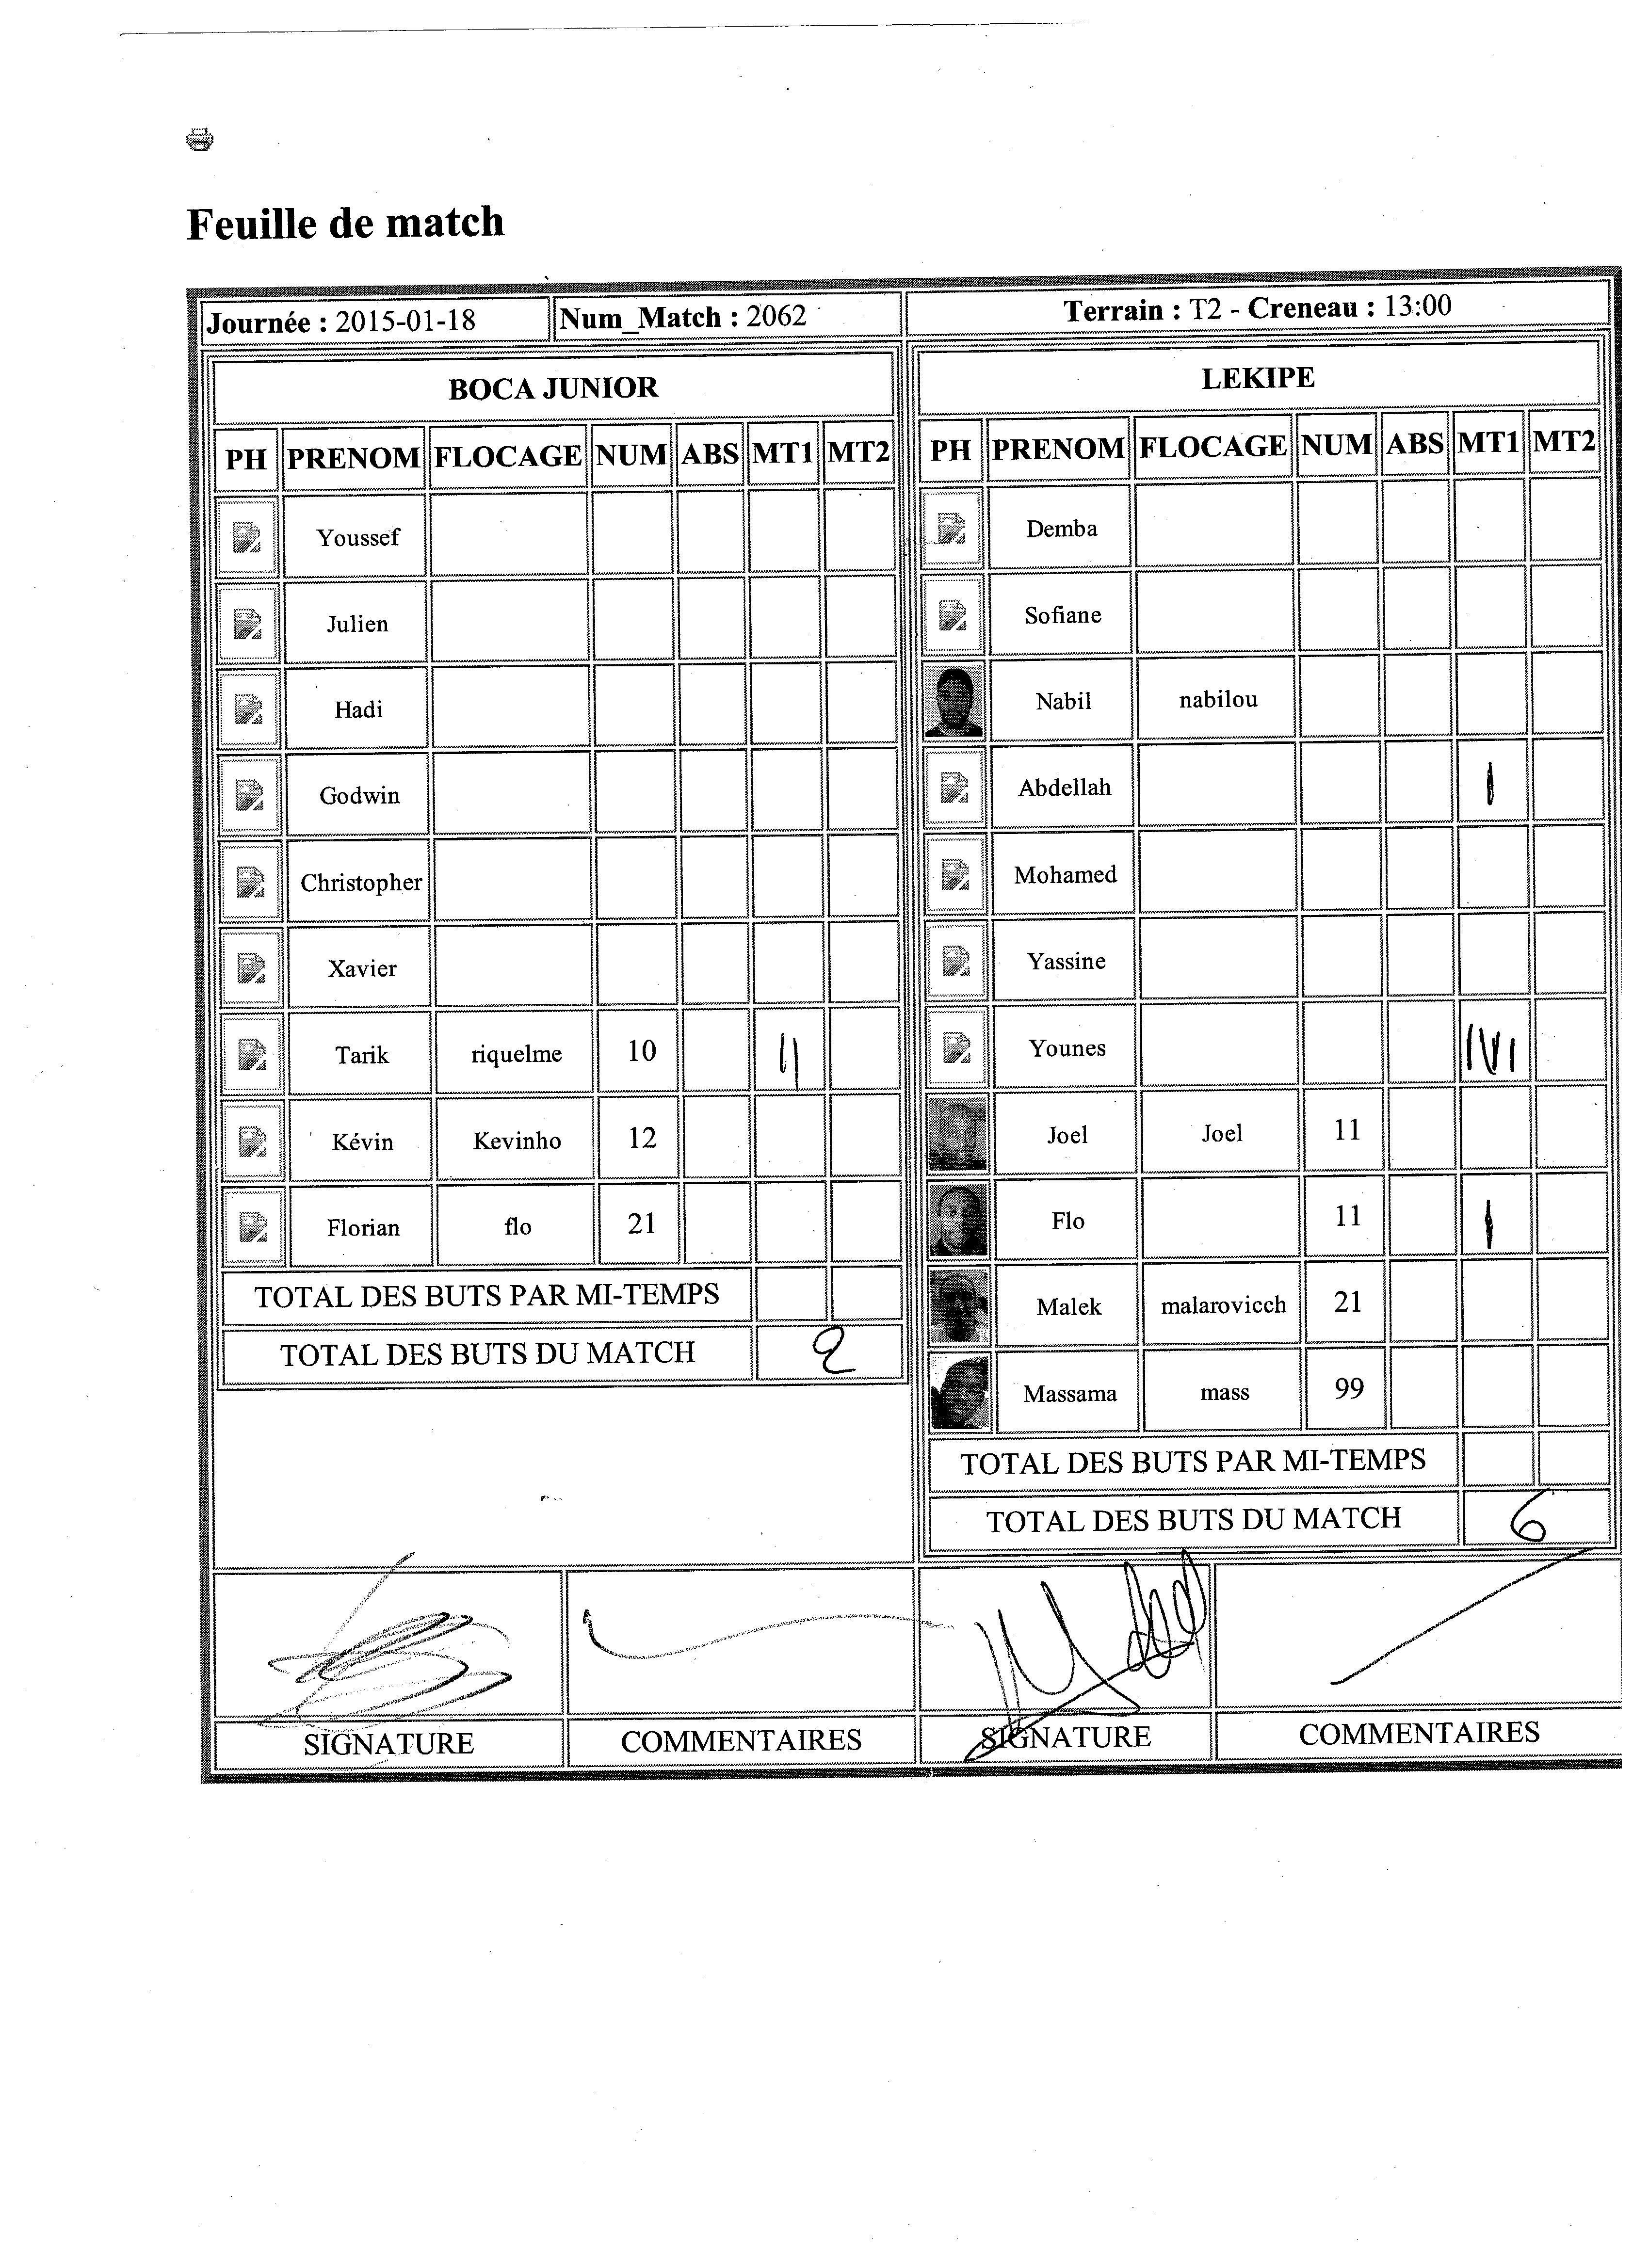 Feuille de match
Journée : 2015-01-18 Num_Match : 2062 Terrain : T2 - Creneau : 13:00
BOCA JUNIOR
PH PRENOM FLOCAGE NUM ABS MT1 MT2
Youssef
Julien
Hadi
Godwin
Christopher
Xavier
Tarik riquelme 10 II
Kévin Kevinho 12
Florian flo 21
TOTAL DES BUTS PAR MI-TEMPS
TOTAL DES BUTS DU MATCH 2
LEKIPE
PH PRENOM FLOCAGE NUM ABS MT1 MT2
Demba
Sofiane
Nabil nabilou
Abdellah I
Mohamed
Yassine
Younes IIII
Joel Joel 11
Flo 11 I
Malek malarovicch 21
Massama mass 99
TOTAL DES BUTS PAR MI-TEMPS
TOTAL DES BUTS DU MATCH 6
SIGNATURE COMMENTAIRES SIGNATURE COMMENTAIRES